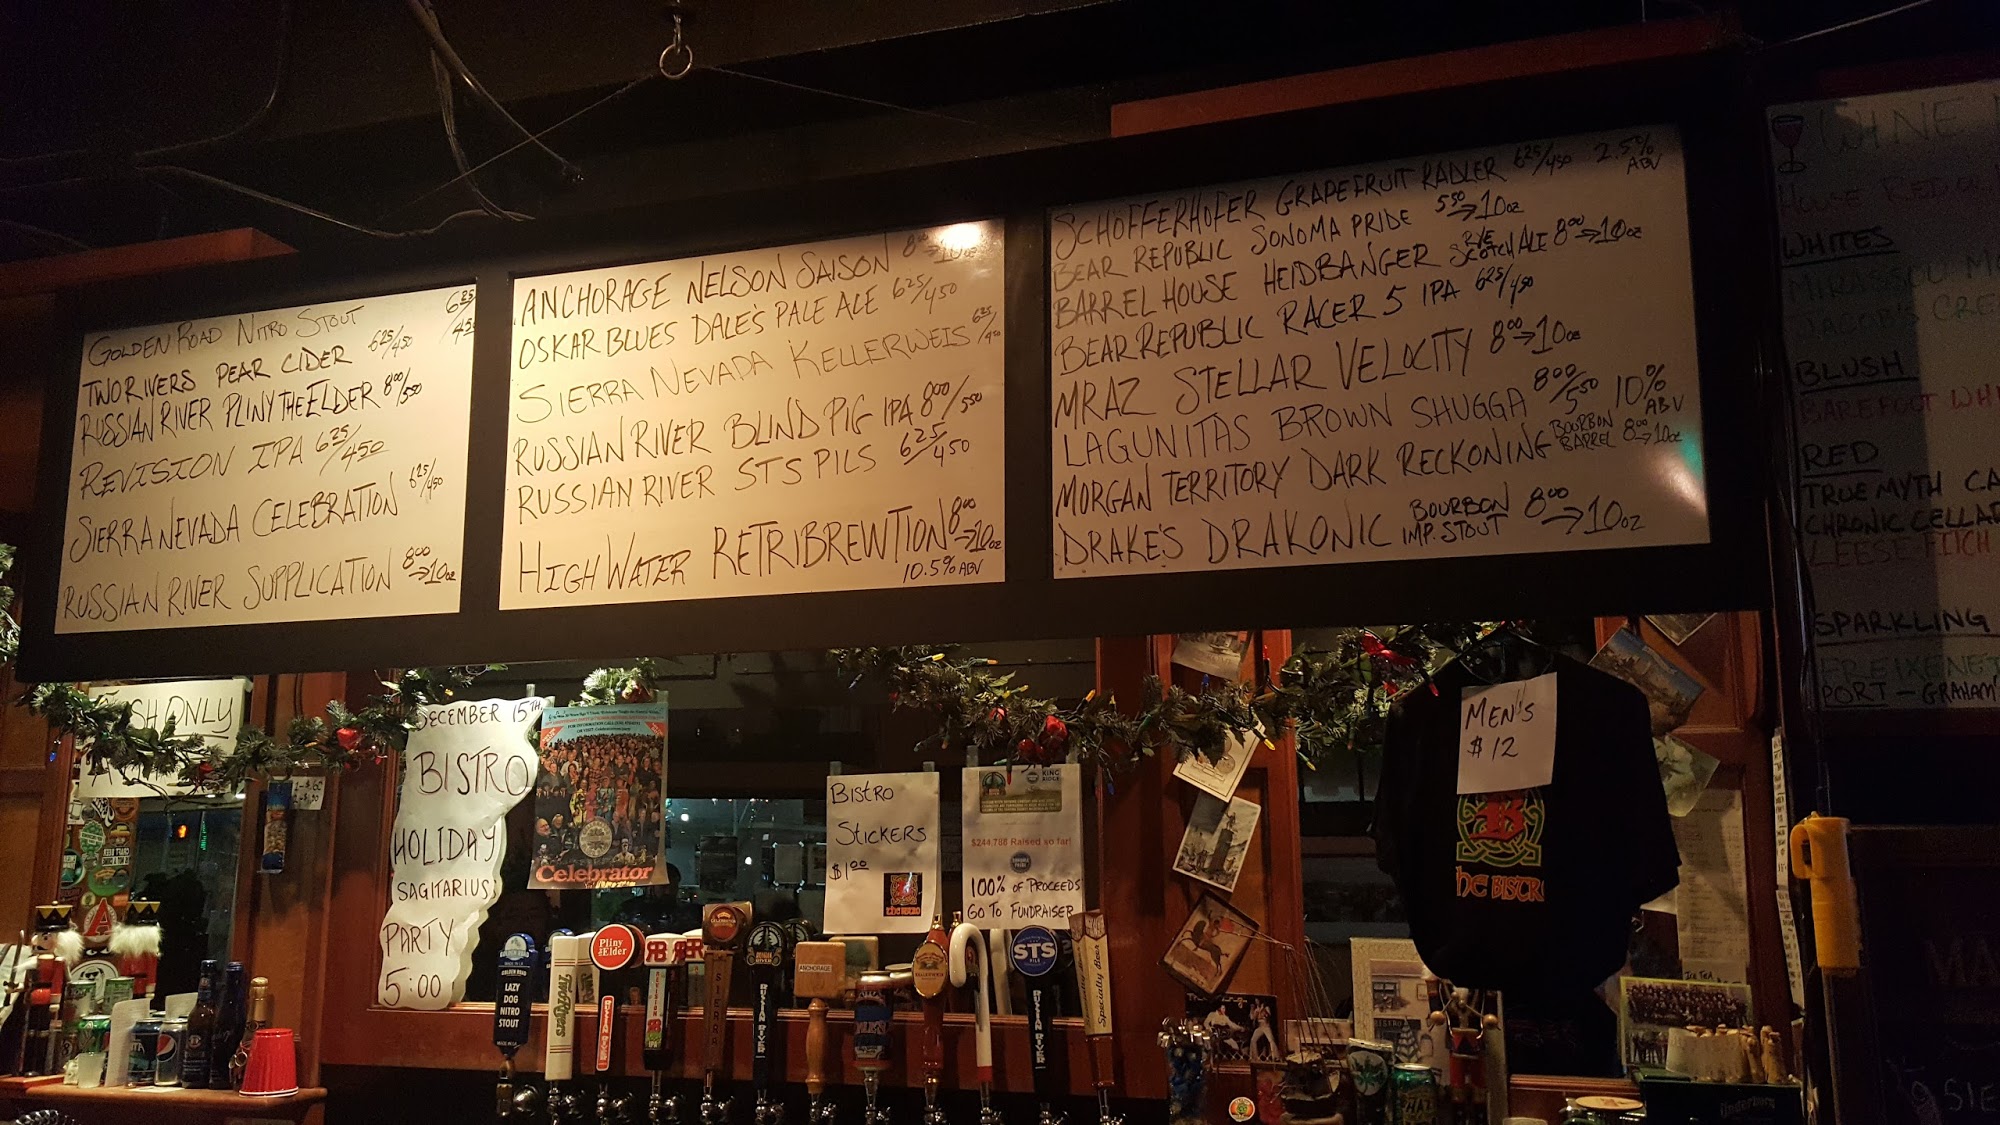 GOLDEN ROAD NITRO STOUT 625/450
TWO RIVERS PEAR CIDER 625/450
RUSSIAN RIVER PLINY THE ELDER 800/550
REVISION IPA 625/450
SIERRA NEVADA CELEBRATION 625/450
RUSSIAN RIVER SUPPLICATION 800→10oz
ANCHORAGE NELSON SAISON 800→10oz
OSKAR BLUES DALE'S PALE ALE 625/450
SIERRA NEVADA KELLERWEIS 625/450
RUSSIAN RIVER BLIND PIG IPA 800/550
RUSSIAN RIVER STS PILS 625/450
HIGH WATER RETRIBREWTION 800→10oz
10.5% ABV
SCHÖFFERHOFER GRAPEFRUIT RADLER 625/450 2.5% ABV
BEAR REPUBLIC SONOMA PRIDE 550→10oz
BARREL HOUSE HEIDBANGER RYE SCOTCH ALE 800→10oz
BEAR REPUBLIC RACER 5 IPA 625/450
MRAZ STELLAR VELOCITY 800→10oz
LAGUNITAS BROWN SHUGGA 800/550 10% ABV
MORGAN TERRITORY DARK RECKONING BOURBON BARREL 800→10oz
DRAKE'S DRAKONIC BOURBON IMP. STOUT 800→10oz
WINE
HOUSE RED
WHITES
MIRASSOU
JACOB'S CRE
BLUSH
BAREFOOT WHI
RED
TRUE MYTH CA
CHRONIC CELLAR
LEESE FITCH
SPARKLING
FREIXENET
PORT - GRAHAM'S
SH ONLY
DECEMBER 15TH
BISTRO
HOLIDAY
SAGITARIUS
PARTY
5:00
Celebrator
BISTRO
STICKERS
$1.00
THE BISTRO
KING RIDGE
$244,786 Raised so far!
100% OF PROCEEDS
GO TO FUNDRAISER
MEN'S
$12
THE BISTRO
GOLDEN ROAD
LAZY
DOG
NITRO
STOUT
Two Rivers
Pliny
the Elder
RUSSIAN RIVER
REVISION
IPA
SIERRA
RUSSIAN RIVER
ANCHORAGE
STS
PILS
RUSSIAN RIVER
Specialty Beer